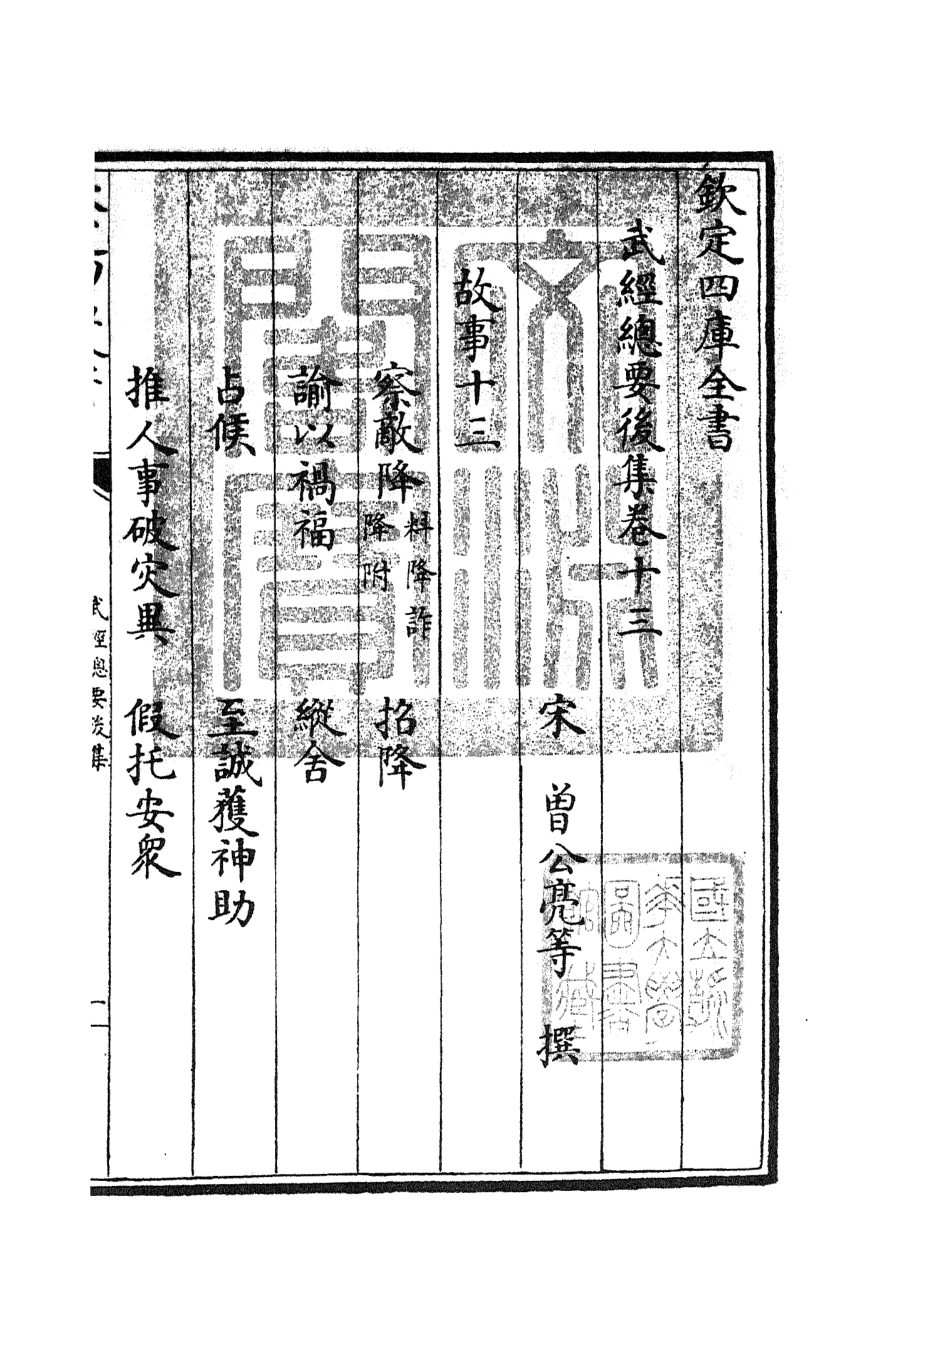 欽定四庫全書
武經總要後集卷十三
宋 曾公亮等 撰
故事十三
察敵降 料降詐降附 招降
諭以禍福 縱舍
占候 至誠獲神助
推人事破災異 假托安眾
武經總要後集
一
文淵閣寶
國立清華大學圖書館藏